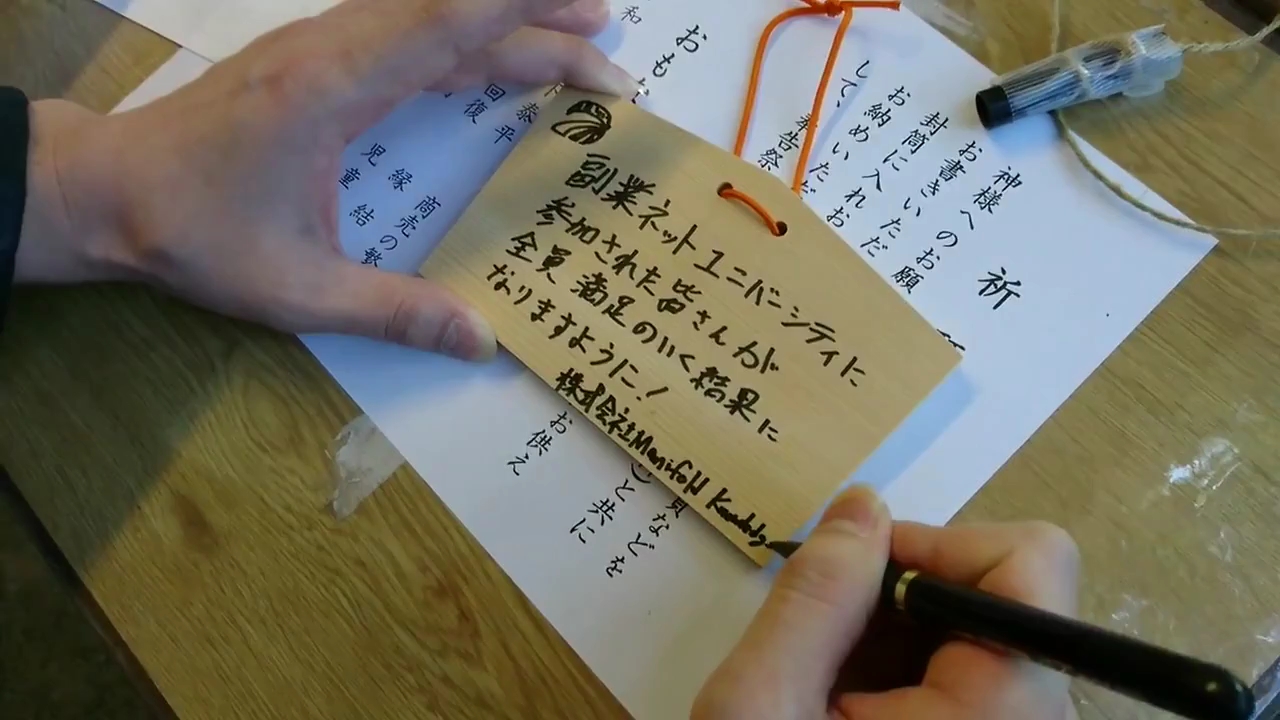 副業ネットユニバーシティに
参加された皆さんが
全員満足のいく結果に
なりますように!
株式会社Manifold
祈
神様へのお願
お書きいただ
封筒に入れお
お納めいただ
して、奉告祭
おも
和
泰平
回復
商売の繁
縁結
児童
お供え
と共に
などを